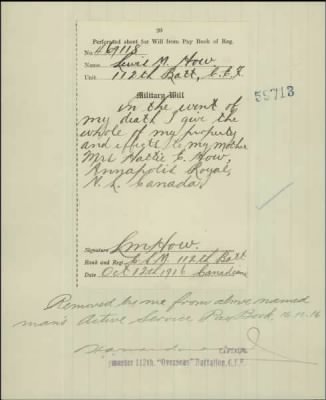 20
Perforated sheet for Will from Pay Book of Reg.
No. 469118
Name Lewis M. How
Unit. 112th Batt, C.E.F.
Military Will
In the event of
my death I give the
whole of my property
and effects to my mother
Mrs Hattie C. How,
Annapolis Royal,
N.S. Canada.
55713
Signature LMHow.
Rank and Reg. 112th Batt
Date Oct 12th 1916 Canadians
Removed by me from above named
man's Active Service Pay Book. 16.11.16
Captain
master 112th. "Overseas" Battalion, C.E.F.